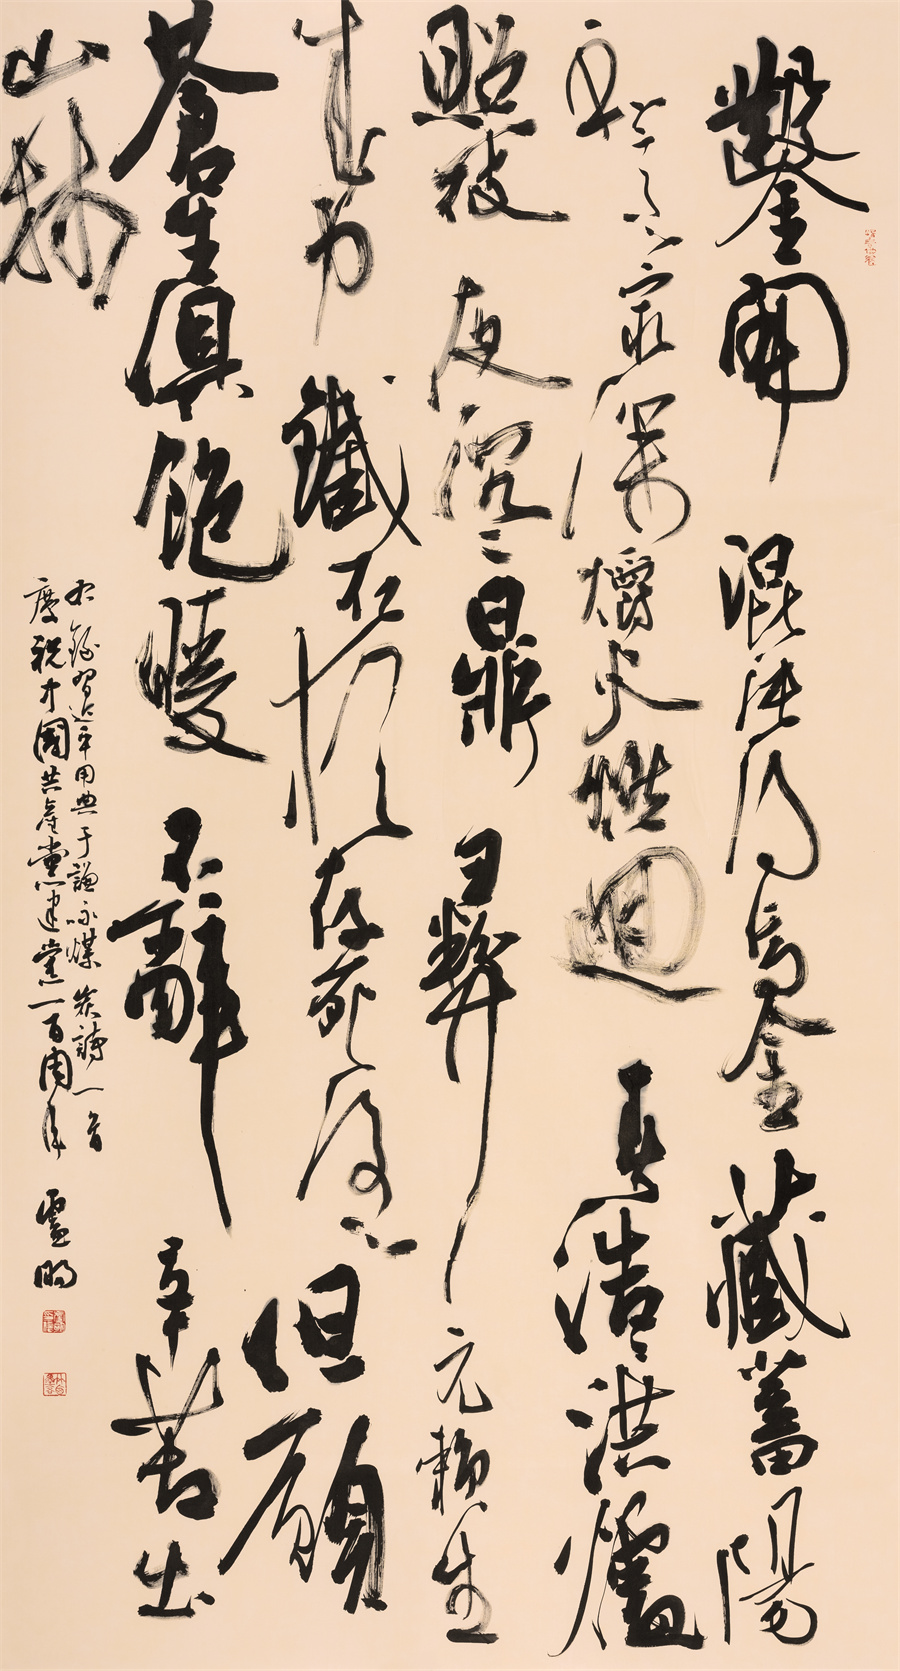 鑿開混沌得烏金藏蓄陽
和意最深爝火燃迴春浩浩洪爐
照破夜沉沉鼎彝元賴生
成力鐵石猶存死後心但願
蒼生俱飽暖不辭辛苦出
山林
右錄習近平用典于謙詠煤炭詩一首
慶祝中國共產黨建黨一百周年 盧明